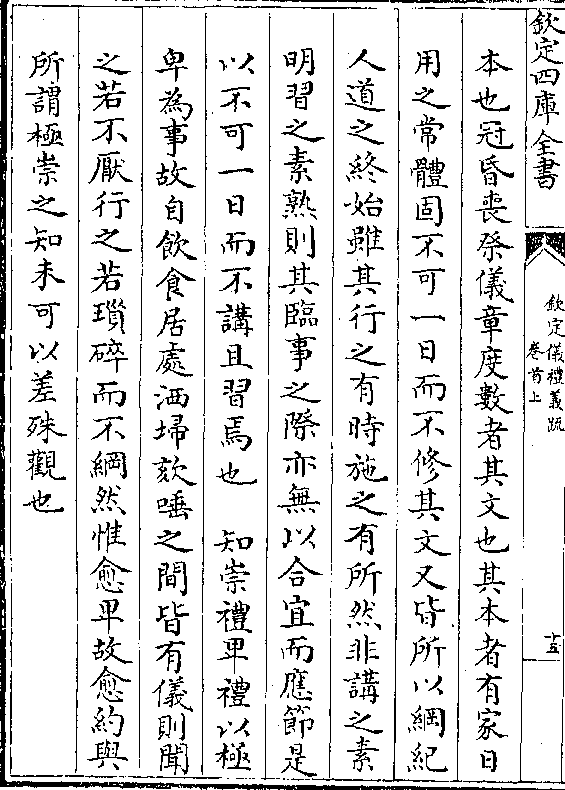 欽定四庫全書
欽定儀禮義疏
卷首上
十五
本也冠昏喪祭儀章度數者其文也其本者有家日
用之常體固不可一日而不修其文又皆所以綱紀
人道之終始雖其行之有時施之有所然非講之素
明習之素熟則其臨事之際亦無以合宜而應節是
以不可一日而不講且習焉也　知崇禮卑禮以極
卑為事故自飲食居處洒埽欬唾之間皆有儀則聞
之若不厭行之若瑣碎而不綱然惟愈卑故愈約與
所謂極崇之知未可以差殊觀也